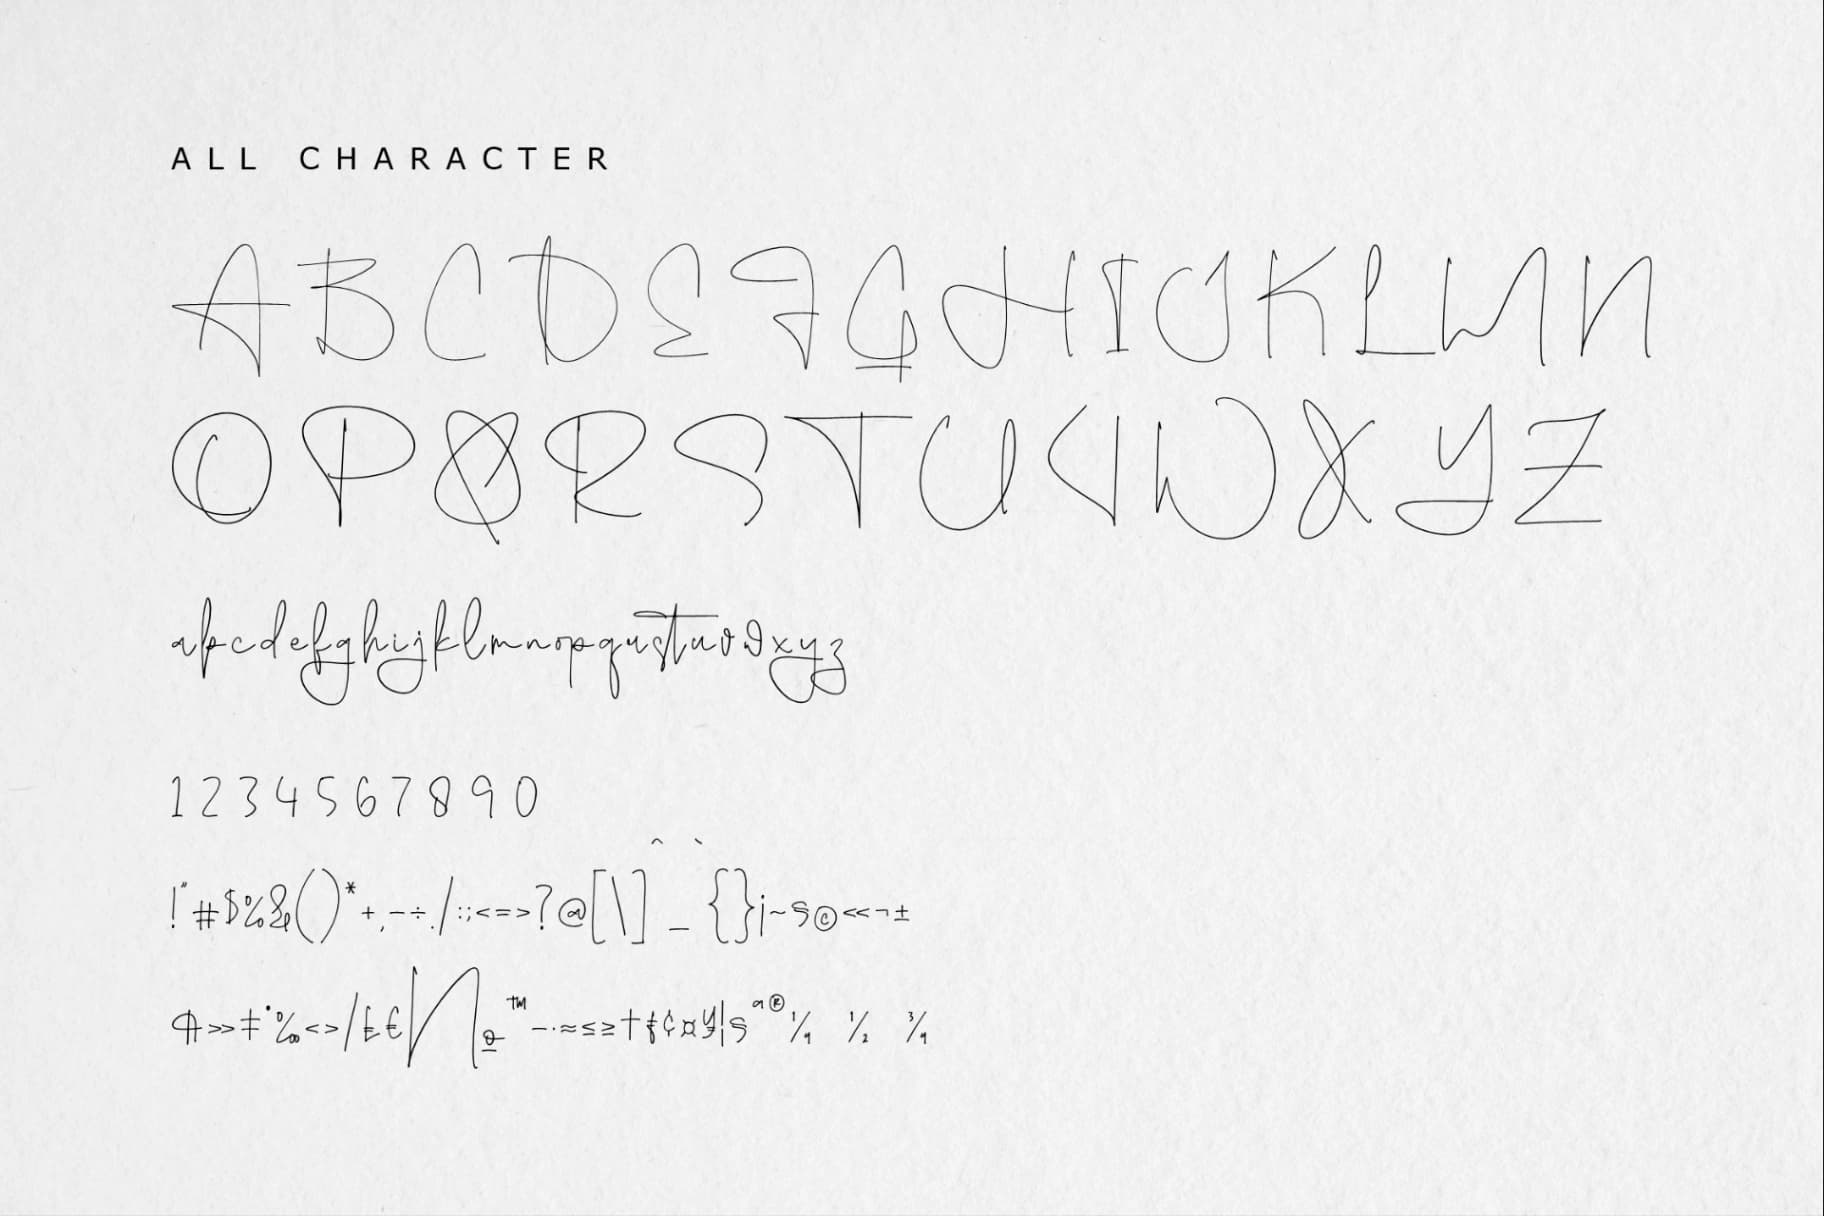 ALL CHARACTER
A B C D E F G H I J K L M N
O P Q R S T U V W X Y Z
abcdefghijklmnopqrstuvwxyz
1234567890
!"#$%&()*+,-÷./:;<=>?@[\]^_`{}¡~§©«¬±
¶»‡°‰‹›/£€ º™–·≈≤≥†ƒ¢¤¥¦§ª®¼ ½ ¾